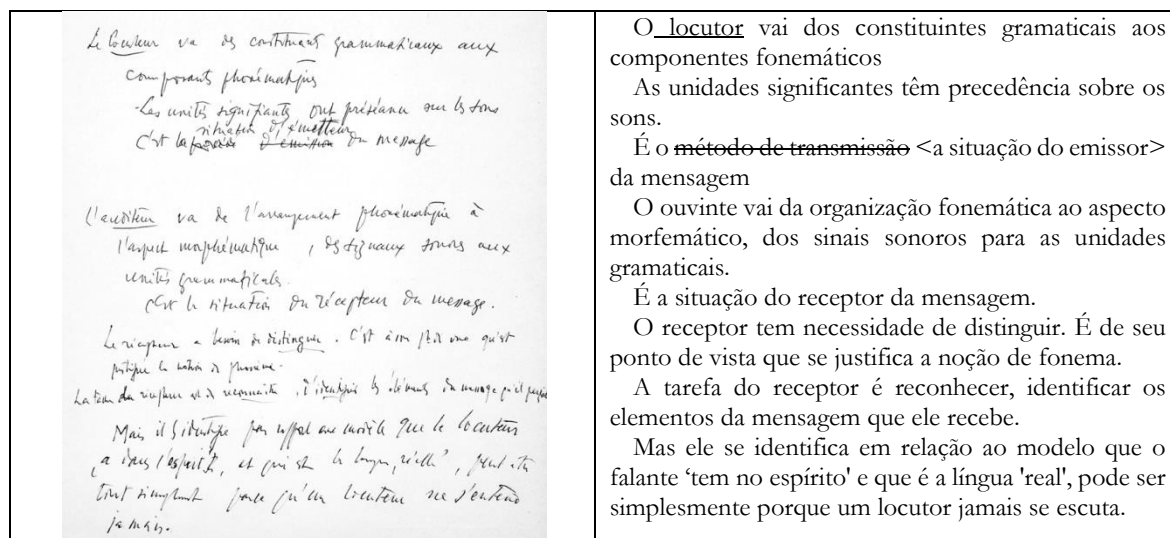 Le locuteur va des constituants grammaticaux aux
composants phonématiques
-Les unités signifiantes ont préséance sur les sons
situation de l'émetteur
C'est la d'émission du message
L'auditeur va de l'arrangement phonématique à
l'aspect morphématique, des signaux sonores aux
unités grammaticales.
C'est la situation du récepteur du message.
Le récepteur a besoin de distinguer. C'est à son pt de vue qu'est
justifiée la notion de phonème.
La tâche du récepteur est de reconnaître, d'identifier les éléments du message qu'il
Mais il s'identifie par rapport au modèle que le locuteur
"a dans l'esprit", et qui est la langue "réelle", peut être
tout simplement parce qu'un locuteur ne s'entend
jamais.
O locutor vai dos constituintes gramaticais aos
componentes fonemáticos
As unidades significantes têm precedência sobre os
sons.
É o método de transmissão <a situação do emissor>
da mensagem
O ouvinte vai da organização fonemática ao aspecto
morfemático, dos sinais sonoros para as unidades
gramaticais.
É a situação do receptor da mensagem.
O receptor tem necessidade de distinguir. É de seu
ponto de vista que se justifica a noção de fonema.
A tarefa do receptor é reconhecer, identificar os
elementos da mensagem que ele recebe.
Mas ele se identifica em relação ao modelo que o
falante ‘tem no espírito' e que é a língua 'real', pode ser
simplesmente porque um locutor jamais se escuta.